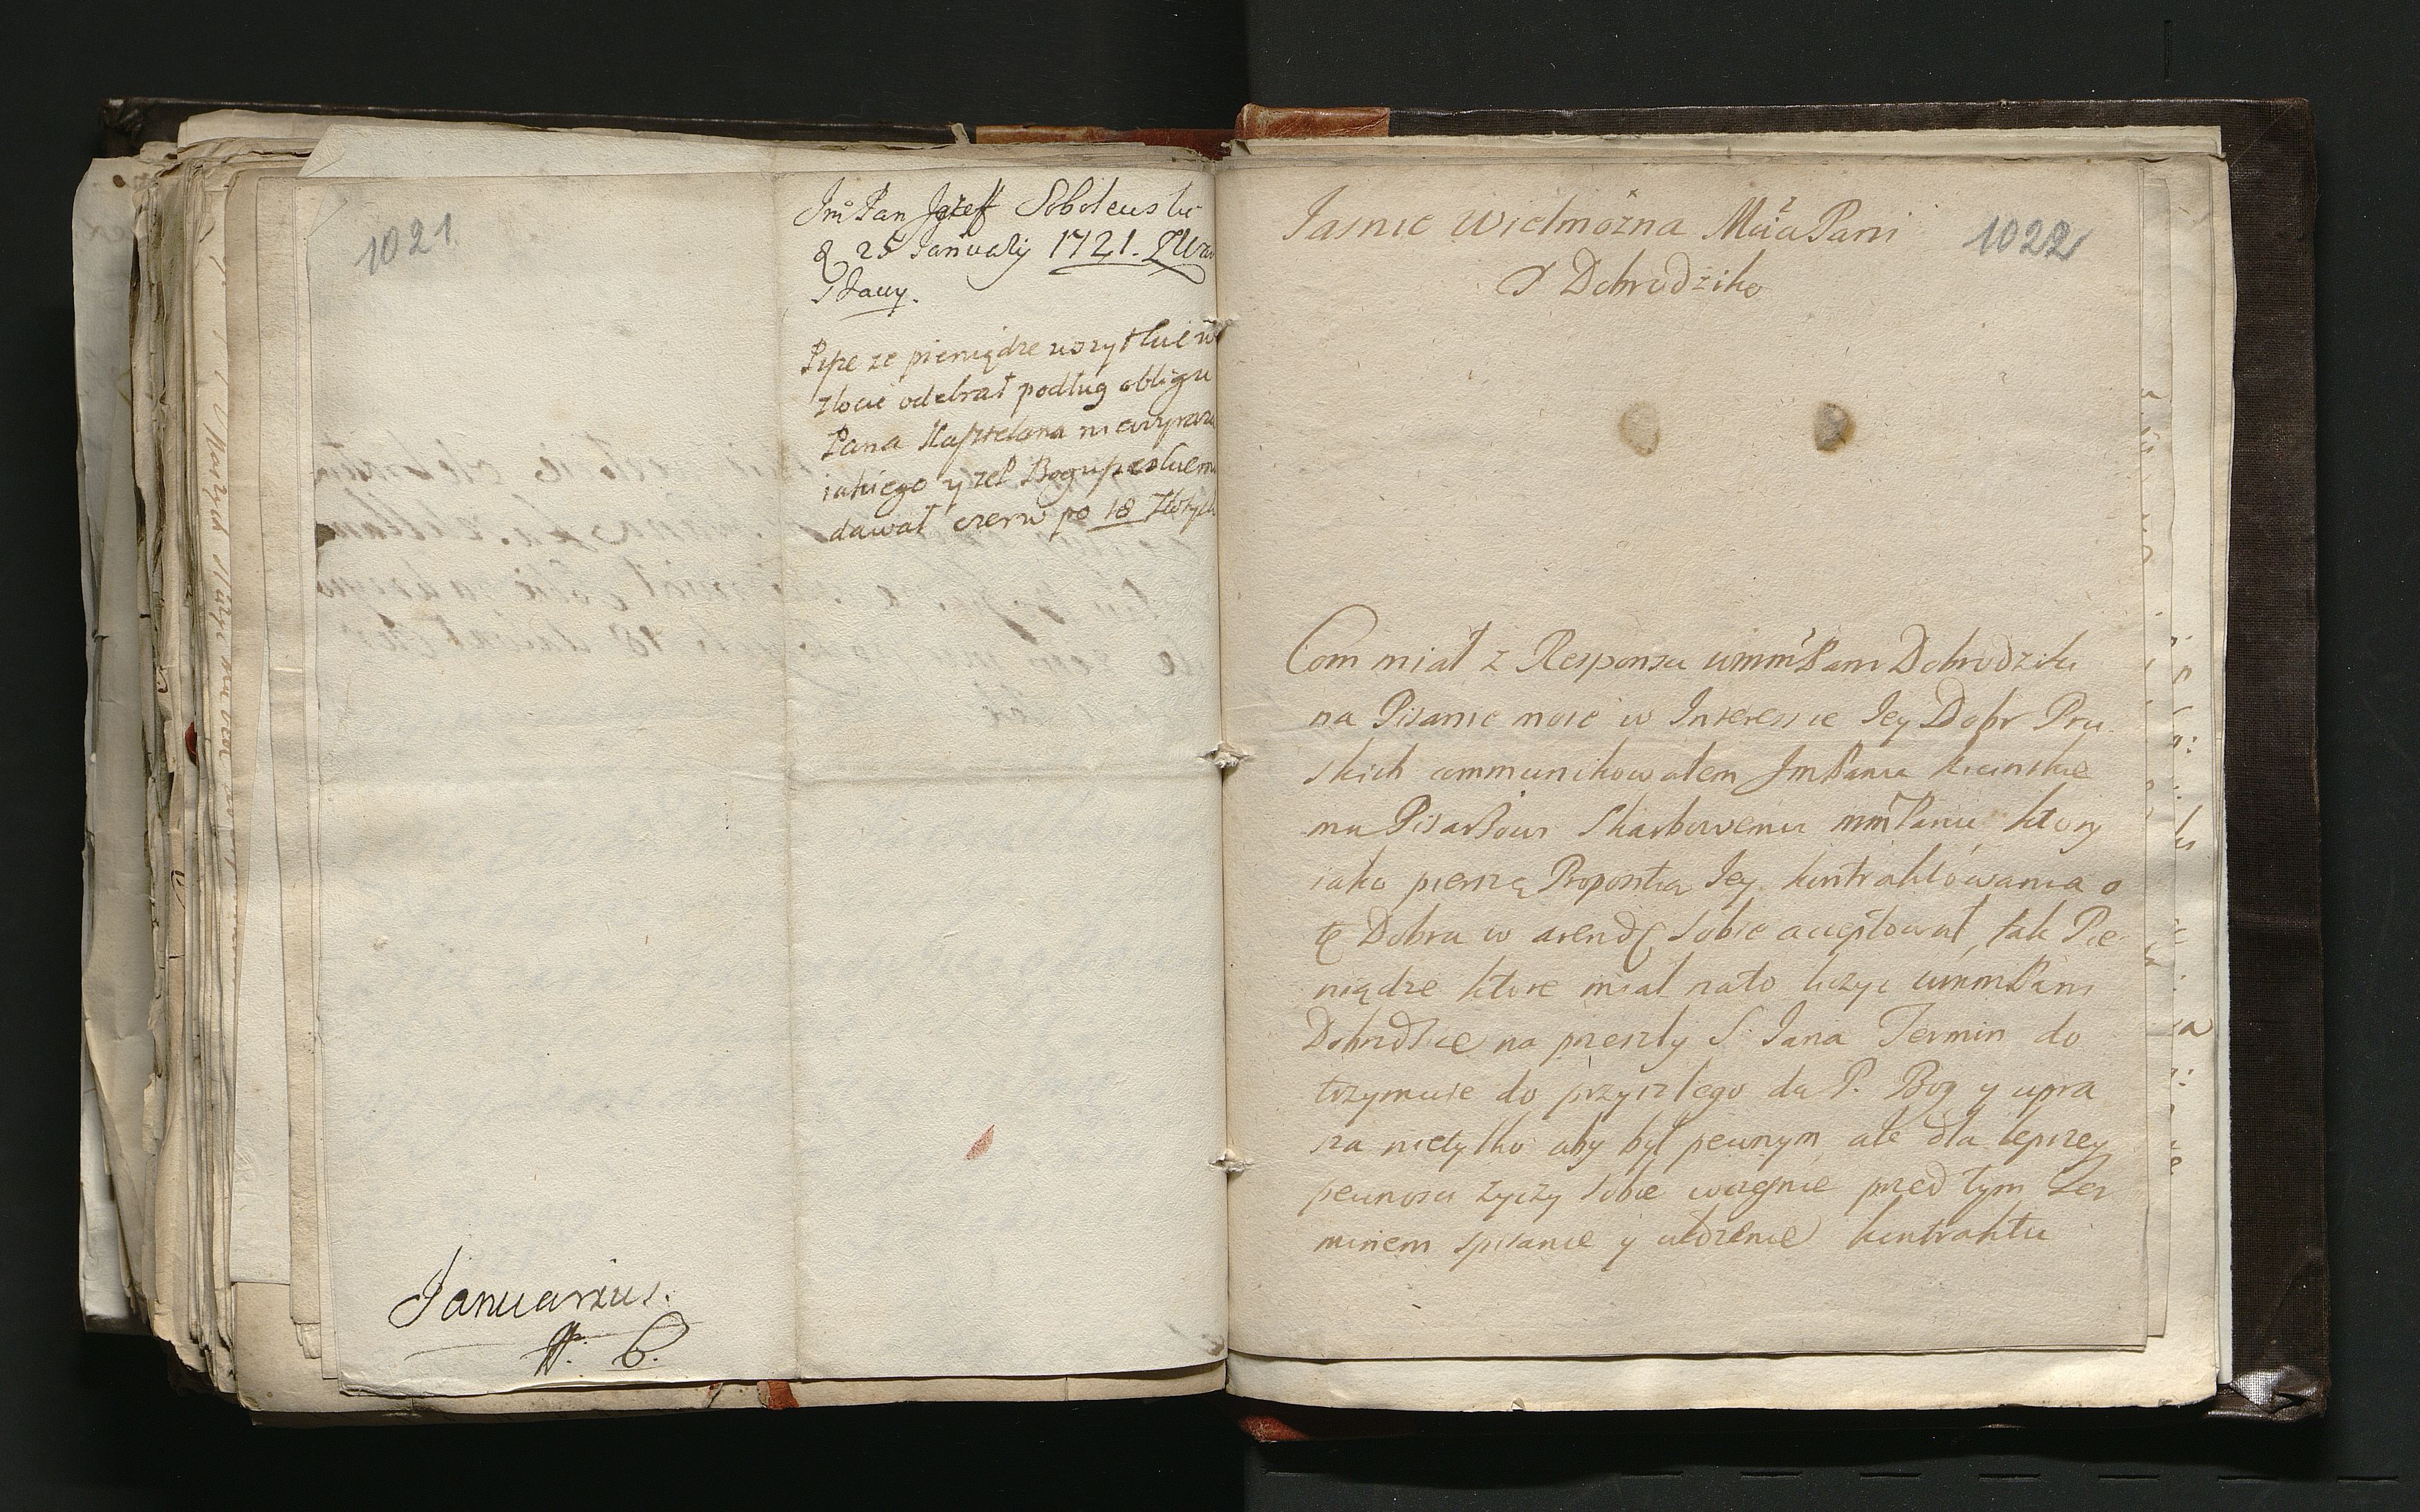 1021
Jm̊ Pan Jozeff Soboleuski
d 25 January 1721. Z War
szawy.
Pisze ze pieniądze wszytkie w
złocie odebrał podług obligu
Pana Kasztelana
iakiego y zes Boguszeskiem
dawał czerw po 18 złotych
Januarius.
N. 6.
1022
Iasnie Wielmożna Mcia Pani
y Dobrodziko
Com miał z Responsu wmm Pani Dobrodziki
na Pisanie moie w Interessie Iey Dobr Pru-
skich communikowałem Jm Panu kicinskie
mu Pisarzowi Skarbowemu mm Panu, ktory
iako pierszą Propozitią Iey kontraktowania o
te Dobra w arendę sobie acceptował, tak Pie-
niądze ktore miał nato liczyc wmm Pani
Dobrodzice na przeszły S. Iana Termin do
trzymuie do przyszłego da P. Bog y upra
sza nietylko aby był pewnym, ale dla lepszey
pewnosci zyczy sobie wczesnie przed tym Ter
minem spisanie y kontraktu